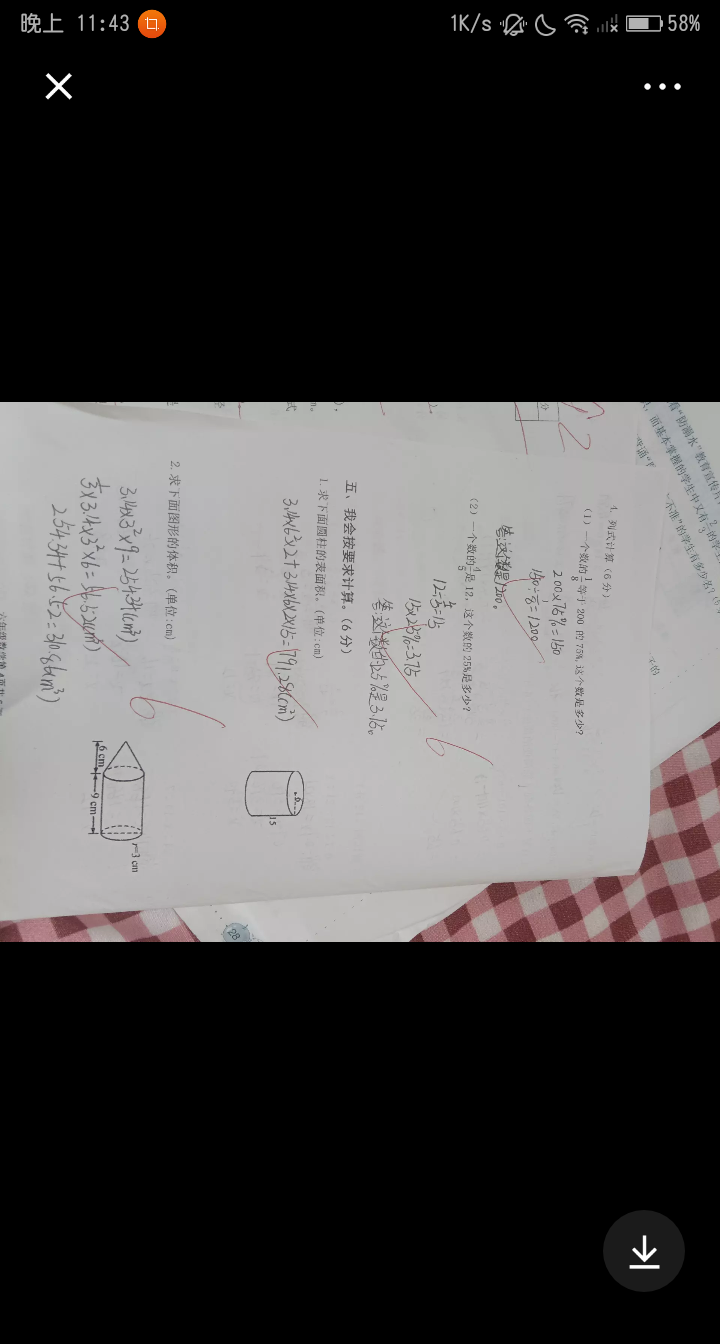 晚上 11:43
1K/s 58%
4. 列式计算（6 分）
（1）一个数的1/8等于 200 的 75%, 这个数是多少?
200×75%=150
150÷1/8=1200
答:这个数是1200。
（2）一个数的4/5是 12，这个数的 25%是多少?
12÷4/5=15
15×25%=3.75
答:这个数的25%是3.75。
五、我会按要求计算。（6 分）
1. 求下面圆柱的表面积。（单位:cm）
3.14×6²×2+3.14×6×2×15=791.28(cm²)
6
15
2. 求下面图形的体积。（单位:cm）
3.14×3²×9=254.34(cm³)
1/3×3.14×3²×6=56.52(cm³)
254.34+56.52=310.86(cm³)
6 cm
9 cm
r=3 cm
6
6
28